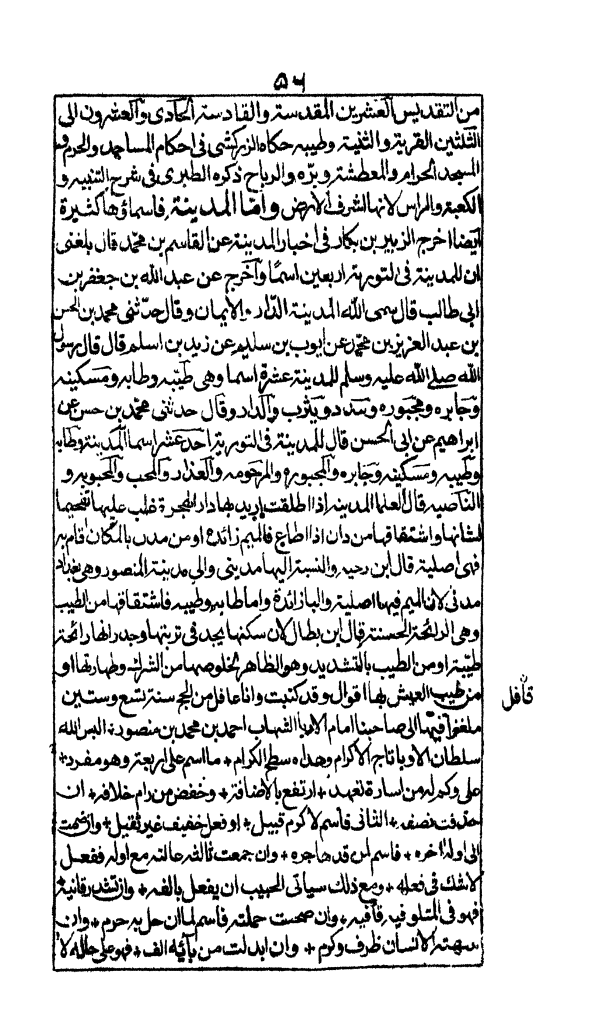 ٥٦
من التقديس العشرين المقدسة والقادسة الحادى والعشرون الى
الثلثين القرية والثنية وطيبه حكاه الزركشى فى احكام المساجد والحرم و
المسجد الحرام والمعطشة وبرّه والرباح ذكره الطبرى فى شرح التنبيه و
الكعبة والراس لانها اشرف الارض واما المدينة فاسماؤها كثيرة
ايضا اخرج الزبير بن بكار فى اخبار المدينة عن القاسم بن محمد قال بلغنى
ان للمدينة فى التورية اربعين اسمًا وأخرج عن عبد الله بن جعفر بن
ابى طالب قال سمى الله المدينة الدار والايمان وقال حدّثنى محمد بن الحسن
بن عبد العزيز بن محمد عن ايوب بن سليم عن زيد بن اسلم قال قال رسول
الله صلے الله عليه وسلم للمدينة عشرة اسما وهى طيبه وطابه ومسكينه
وجابره ومجبوره ويثرب والدار وقال حدثنى محمد بن حسن عن
ابراهيم عن ابى الحسن قال للمدينة فى التورية احد عشر اسما المدينة وطابه
وطيبه ومسكينه وجابره والمجبوره والمرحومه والعذراء والمحب والمحبوبه و
القاصيه قال العلما المدينه اذا اطلقت اريد بها دار الهجرة غلب عليها تفخيما
لشانها واشتقاقها من دان اذا اطاع فالميم زائدة او من مدن بالمكان اقام به
فهى اصلية قال ابن دحيه والنسبة اليها مدينى والى مدينة المنصور وهى بغداد
مدنى لان الميم فيها اصلية واليا زائدة واما طابه وطيبه فاشتقاقها من الطيب
وهى الرائحة الحسنة قال ابن بطال لان سكنها يجد فى تربتها وجدرانها رائحة
طيبة او من الطيب بالتشديد وهو الطاهر لخلوصها من الشرك وطهارتها او
من طيب العيش بها اقوال وقد كتبت وانا قافل من الحج سنة تسع وستين
قافل
ملغزا فيها الى صاحبنا امام الادبا الشهاب احمد بن محمد بن منصور البس الله
سلطان الادبا تاج الاكرام وهداه سطح الكرام ٭ ما اسم على اربعة وهو مفرد ٭
على وكم له من اسارة تعهد ٭ ارتفع بالاضافة ٭ وخفض من رام خلافه ٭ ان
حذفت نصفه ٭ الثانى فاسم لاكرم قبيل ٭ او فعل خفيف غير ثقيل ٭ وان ضمت
الى اوله اخره ٭ فاسم لمن قد هاجره ٭ وان جمعت ثالثه عالته مع اوله ففعل
لاشك فى فعله ٭ ومع ذلك سياتى الحبيب ان يفعل بالفه ٭ وان تشدد ثانية
فهو فى المتلو فيه قافيه ٭ وان صحفت جملته فاسم لما ان حل به حرم ٭ وان
الانسان ظرف وكرم ٭ وان ابدلت من بائه الف ٭ فهو على حاله لا